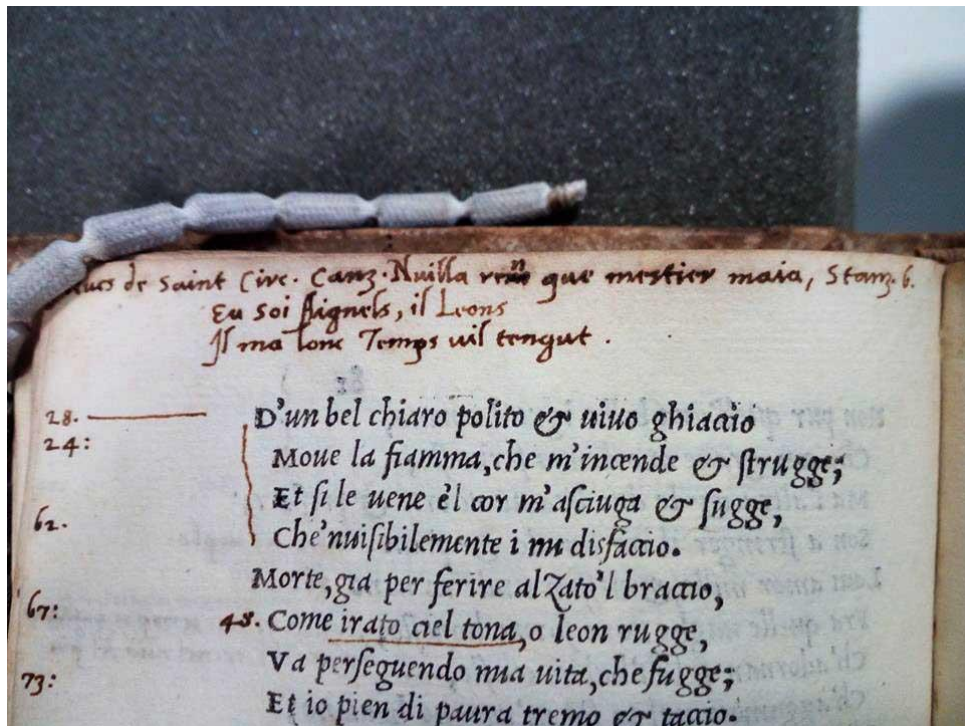 de Saint Circ. Canz. Nuilla ren que mestier maia, Stanz. 6.
Eu soi Aignels, il Leons
Il ma lonc Temps uil tengut.
28.
D'un bel chiaro polito & uiuo ghiaccio
24:
Moue la fiamma, che m'incende & strugge;
Et si le uene e'l cor m'asciuga & sugge,
62.
Che'nuisibilemente i mi disfaccio.
Morte, gia per ferire alzato'l braccio,
67: 48. Come irato ciel tona, o leon rugge,
Va perseguendo mia uita, che fugge;
73:
Et io pien di paura tremo & taccio.